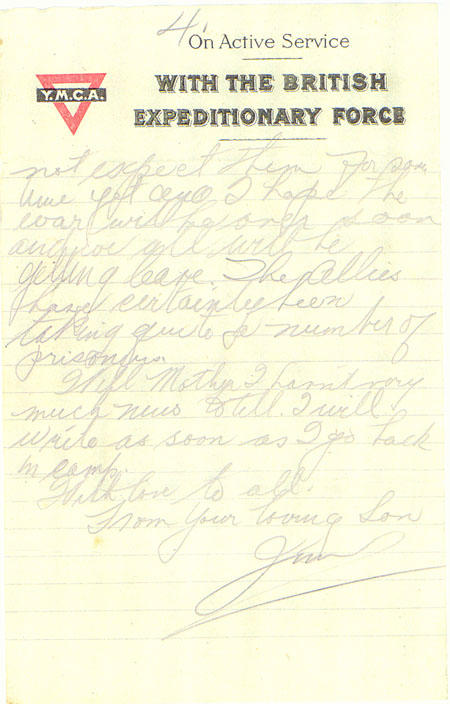 4.
On Active Service
Y.M.C.A.
WITH THE BRITISH
EXPEDITIONARY FORCE
not expect them for some
time yet and I hope the
war will be over soon
and we all will be
getting leave. The Allies
have certainly been
taking quite a number of
prisoners.
Well Mother I havnt very
much news to tell. I will
write as soon as I go back
in camp.
With love to all.
From your loving Son
Jim